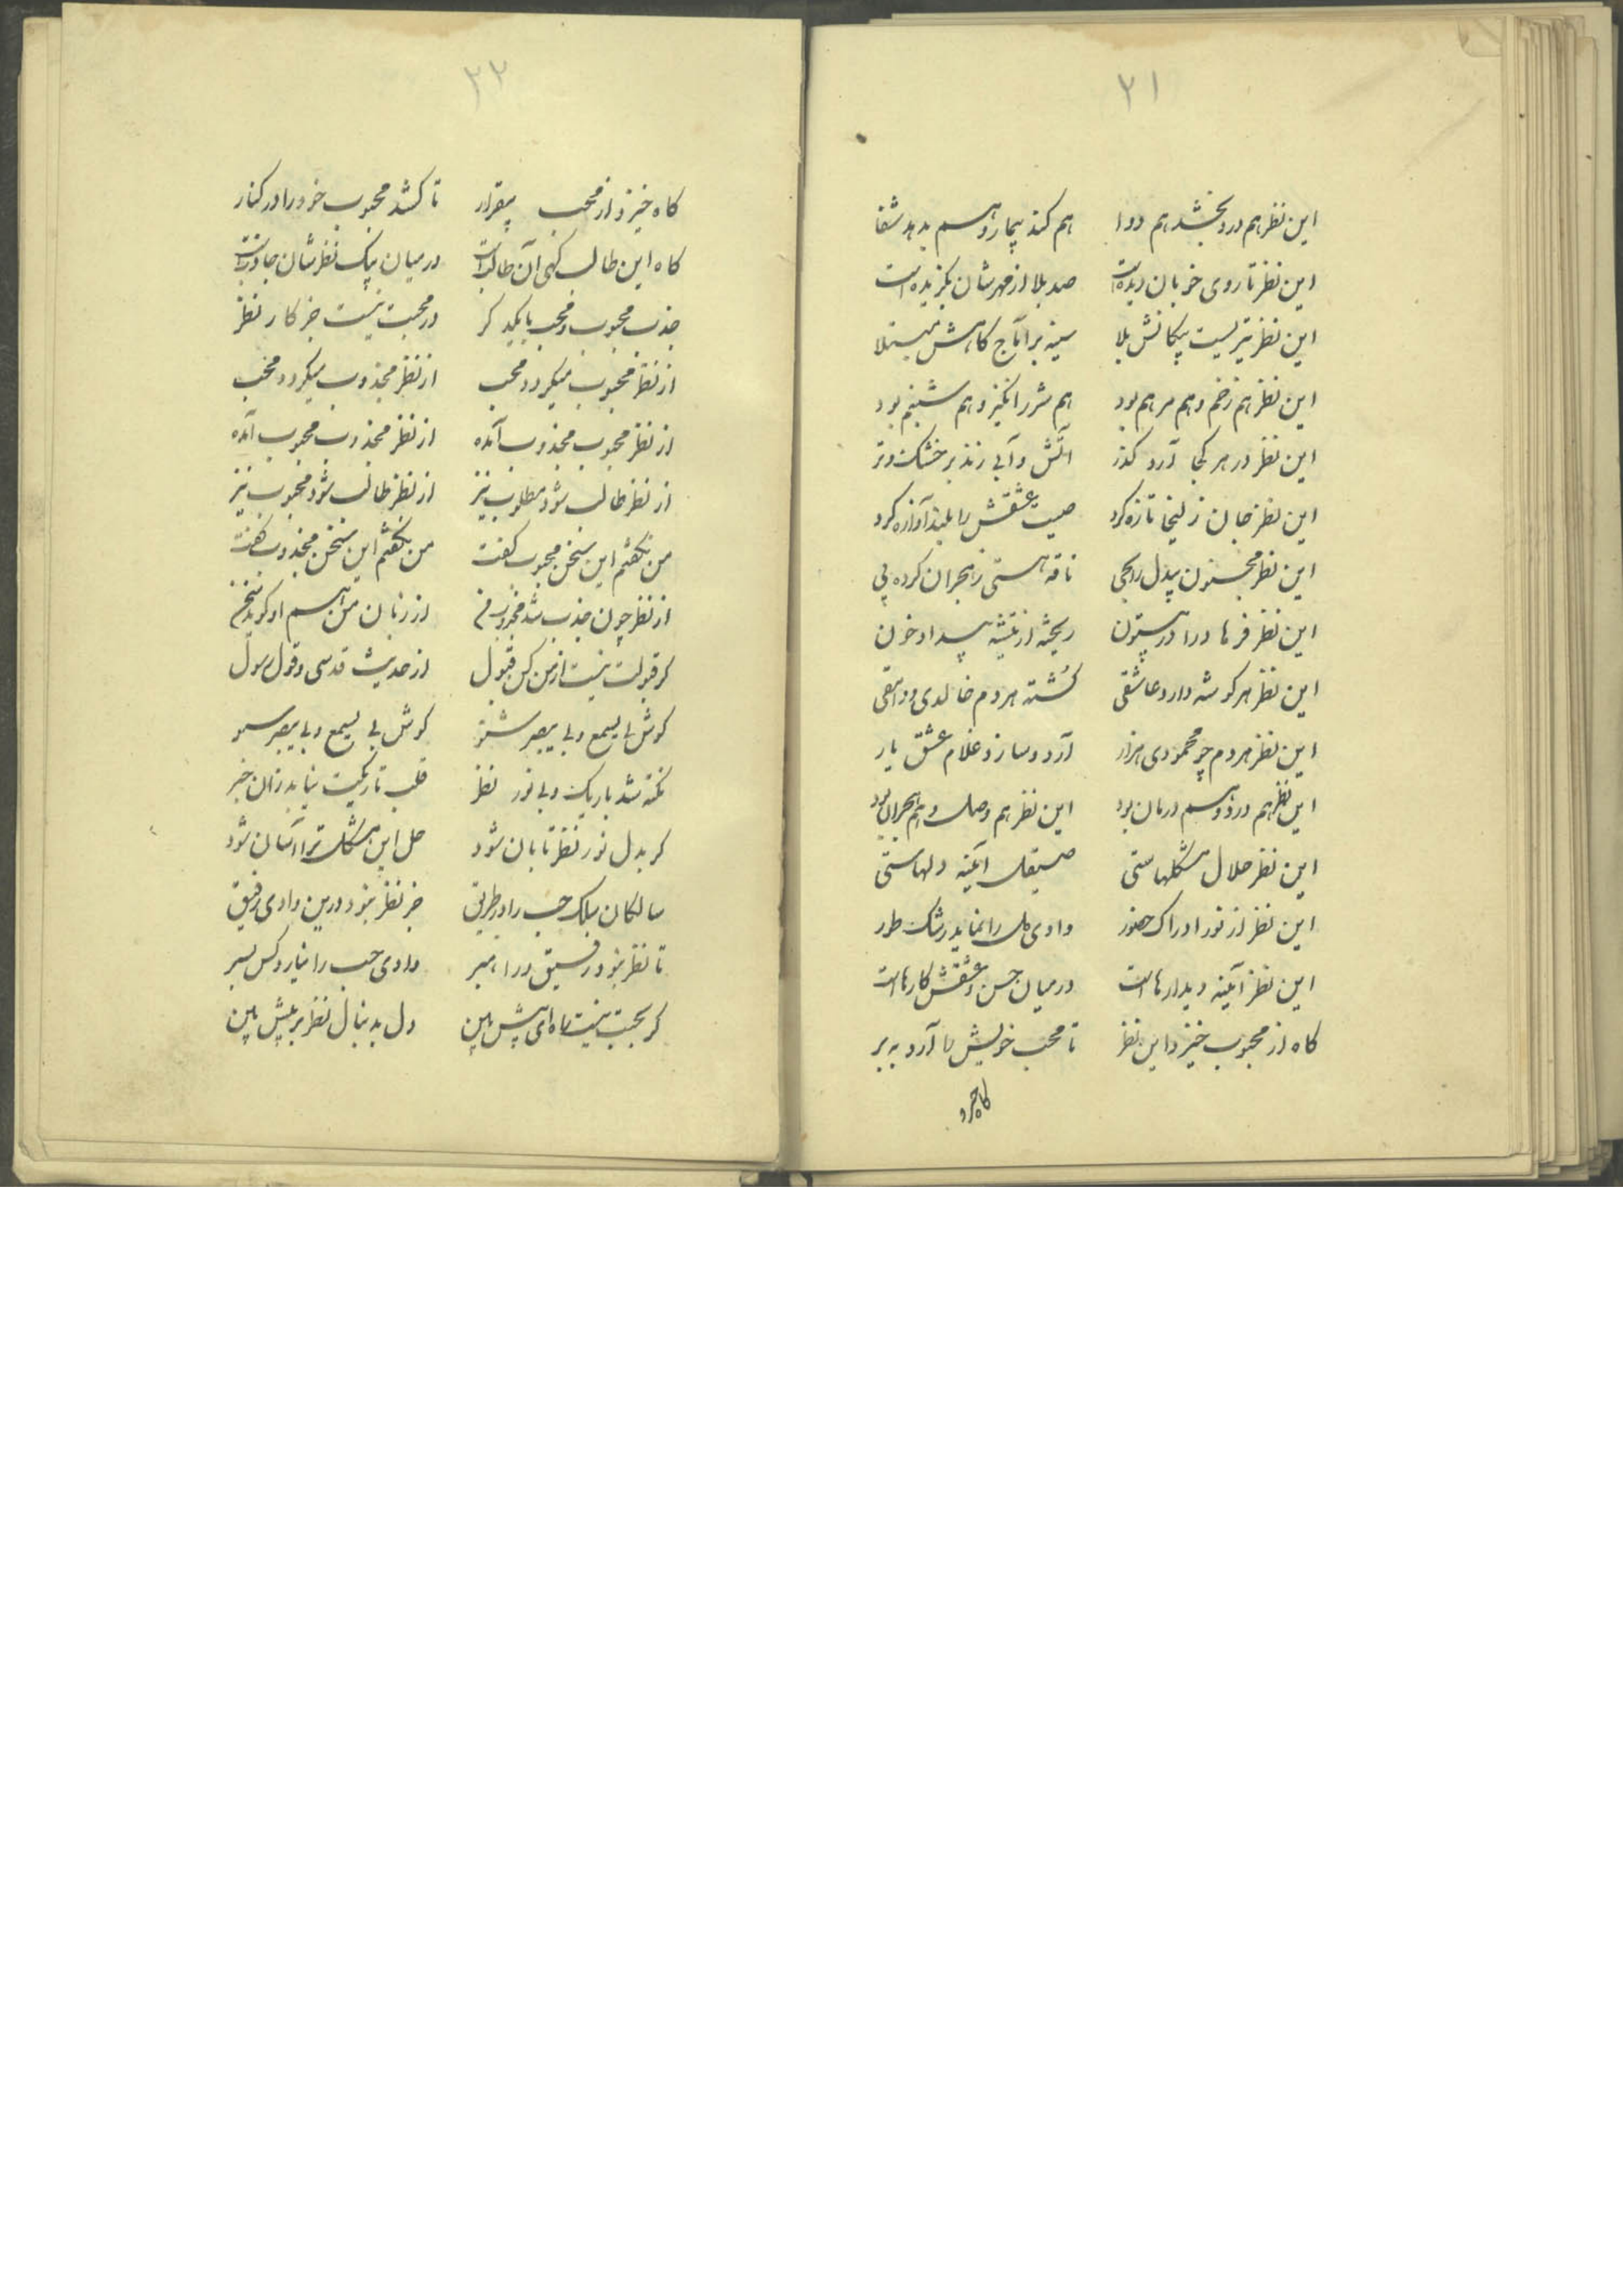 ۲۱
این نظر هم درد بخشد هم دوا هم کند بیمار و هم بدهد شفا
این نظر تا روی خوبان دیده است صد بلا از مهرشان بگزیده است
این نظر تیریست پیکانش بلا سینه بر آماج کاهش مبتلا
این نظر هم زخم و هم مرهم بود هم شرر انگیز و هم شبنم بود
این نظر در هر کجا آرد کذر آتش و آبی زند بر خشک و تر
این نظر جان زلیخا تازه کرد صیت عشقش را بلند آوازه کرد
این نظر مجنون بیدل را بحی ناقه هستی ز هجران کرده پی
این نظر فرهاد را در بیستون ریخته از تیشه بیداد خون
این نظر هر کوشه دارد عاشقی کشته هر دم خالدی و وامقی
این نظر هر دم چو محمودی هزار آرد و سازد غلام عشق یار
این نظر هم درد و هم درمان بود این نظر هم وصل و هم هجران بود
این نظر حلال مشکلهاستی صیقل آئینه دلهاستی
این نظر از نور ادراک حضور وادی دل را نماید رشک طور
این نظر آئینه دیدارهاست در میان حسن و عشقش کارهاست
کاه از محبوب خیزد این نظر تا محب خویش را آرد به بر
کاه خیزد
۲۲
کاه خیزد از محب بیقرار تا کشد محبوب خود را در کنار
کاه این طالب کهی آن طالبست در میان پیک نظرشان جاذبست
جذب محبوب و محب با یکدکر در محبت نیست جز کار نظر
از نظر محبوب میکردد محب از نظر مجذوب میکردد محب
از نظر محبوب مجذوب آمده از نظر مجذوب محبوب آمده
از نظر طالب شود مطلوب نیز از نظر طالب شود محبوب نیز
من نکفتم این سخن محبوب کفت من نکفتم این سخن مجذوب کفت
از نظر چون جذب شد مجذوب من از زبان من هم او کوید سخن
کر قبولت نیست از من کن قبول از حدیث قدسی و قول رسول
کوش بی یسمع و بی یبصر شنو کوش بی یسمع و بی یبصر
نکته شد باریک و بی نور نظر قلب تاریکت نیابد زان خبر
کر بدل نور نظر تابان شود حل این مشکل ترا آسان شود
سالکان ملک حب را در طریق جز نظر نبود درین وادی رفیق
تا نظر نبود رفیق و راهبر وادی حب را نیارد کس بسر
کر بحبت نیست راه ای پیش بین دل بدنبال نظر بر پیش بین